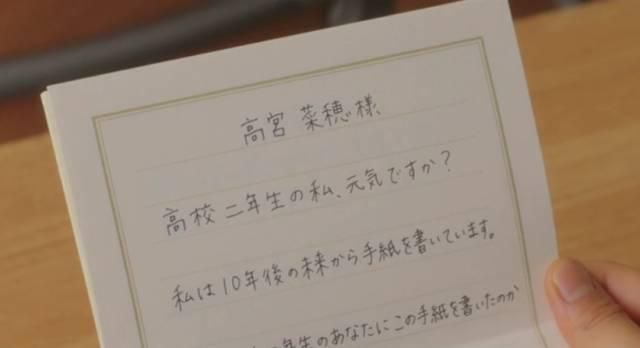 高宮 菜穂様
高校二年生の私、元気ですか？
私は10年後の未来から手紙を書いています。
年生のあなたにこの手紙を書いたのか